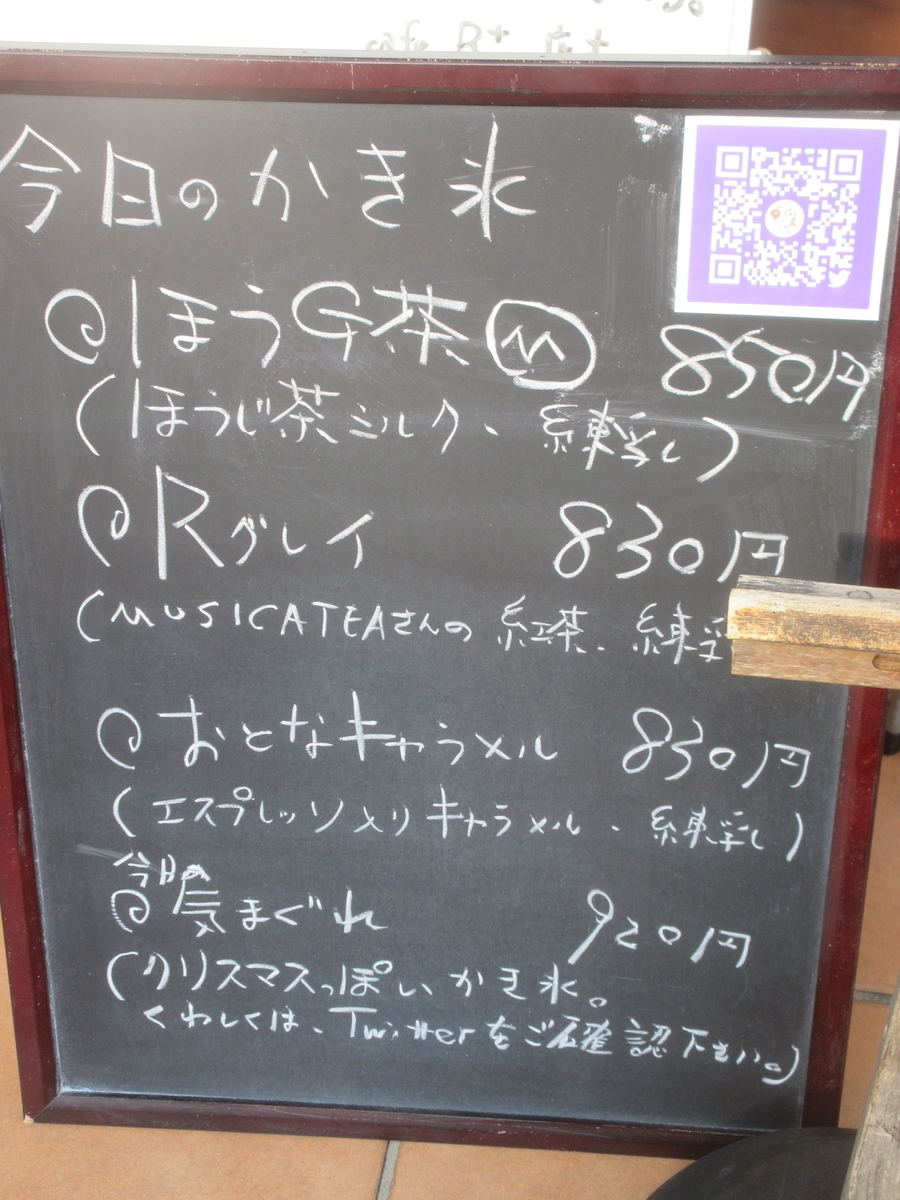 今日のかき氷
@ほうG茶 Ⓜ 850円
(ほうじ茶ミルク、練乳)
@Rグレイ 830円
(MUSICATEAさんの紅茶、練乳
@おとなキャラメル 830円
(エスプレッソ入りキャラメル、練乳)
今日の
@気まぐれ 920円
(クリスマスっぽいかき氷。
くわしくは、Twitterをご確認下さい。)